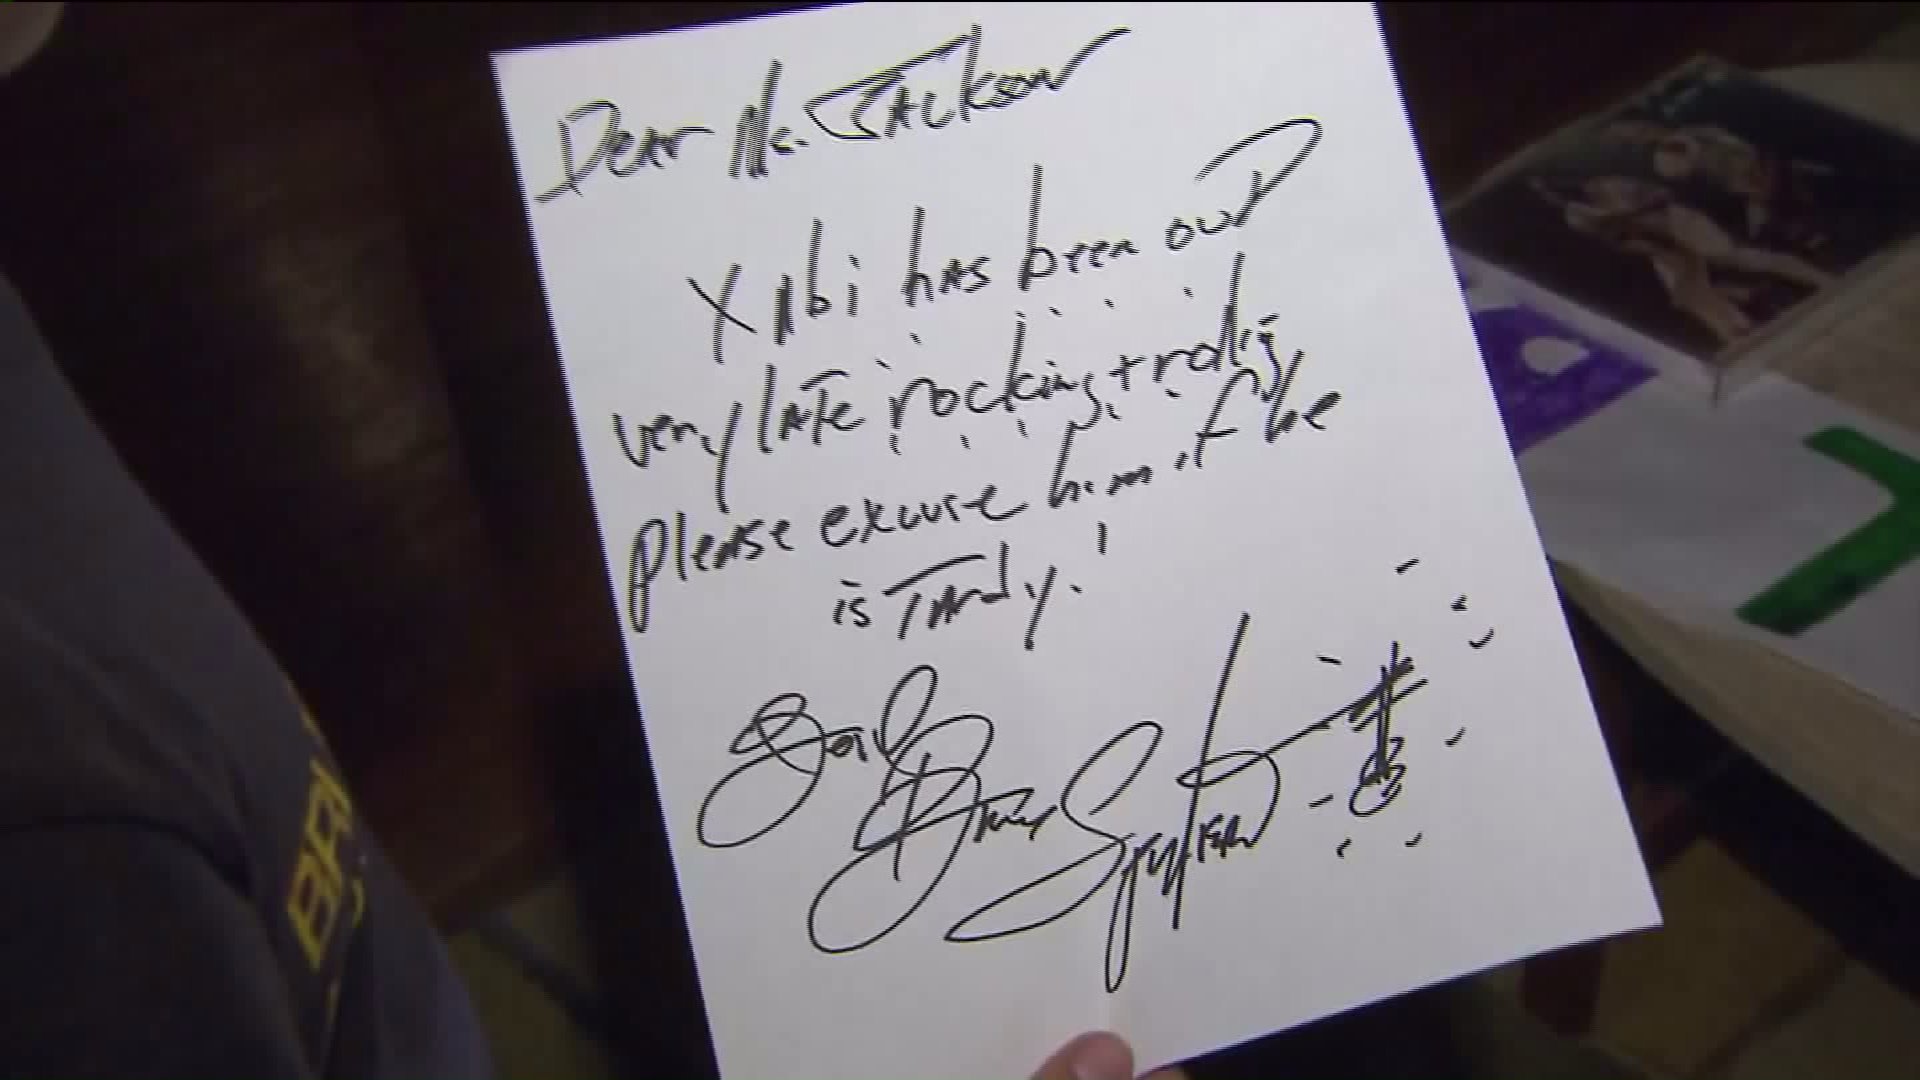 Dear Ms. Jackson
Xabi has been out
very late rocking + rolling
please excuse him if he
is Tardy!
Bruce Springsteen